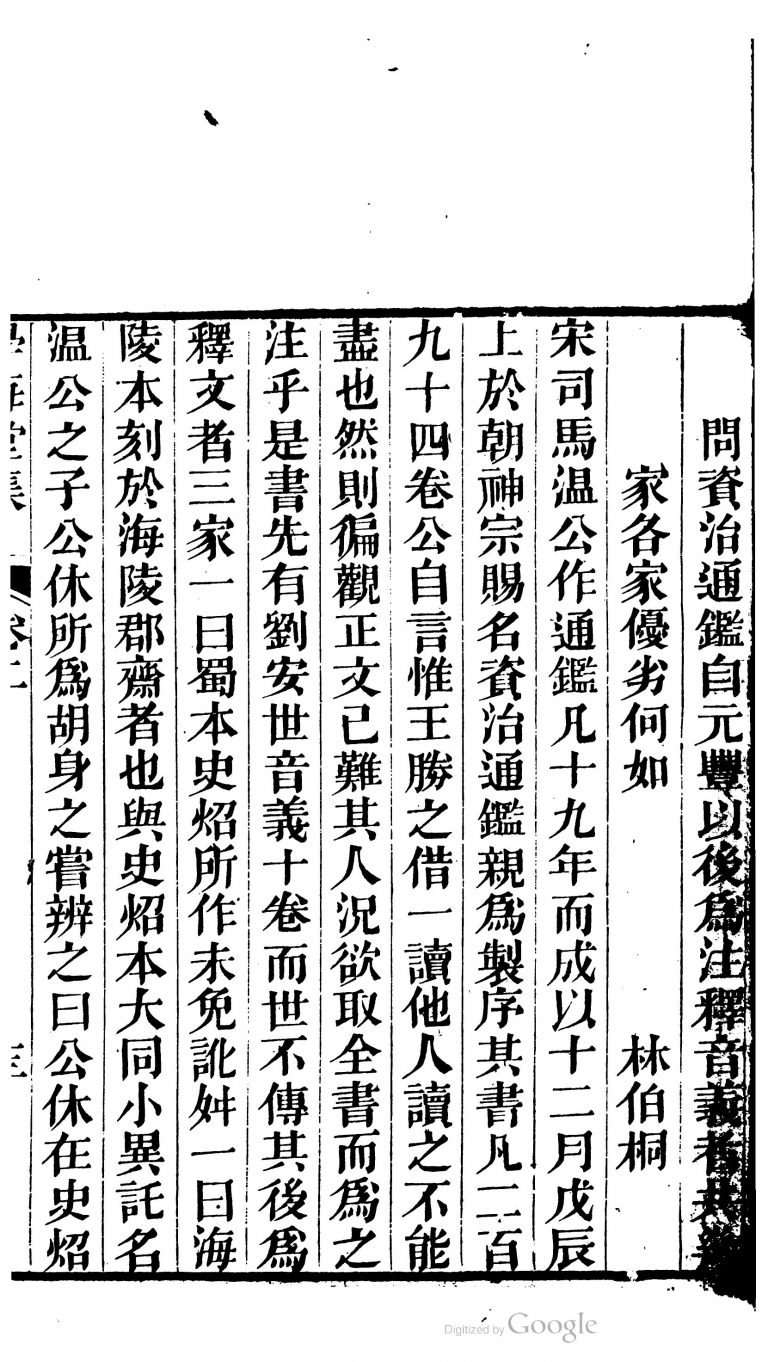 問資治通鑑自元豐以後爲注釋音義者共幾
家各家優劣何如 林伯桐
宋司馬温公作通鑑凡十九年而成以十二月戊辰
上於朝神宗賜名資治通鑑親爲製序其書凡二百
九十四卷公自言惟王勝之借一讀他人讀之不能
盡也然則徧觀正文已難其人況欲取全書而爲之
注乎是書先有劉安世音義十卷而世不傳其後爲
釋文者三家一曰蜀本史炤所作未免訛舛一曰海
陵本刻於海陵郡齋者也與史炤本大同小異託名
温公之子公休所爲胡身之嘗辨之曰公休在史炤
學海堂集 卷二 三
Digitized by Google